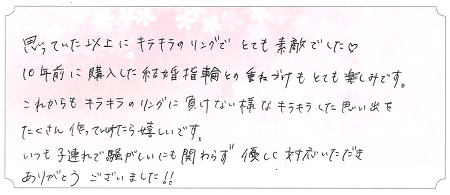 思っていた以上にキラキラのリングでとても素敵でした♡
10年前に購入した結婚指輪との重ねづけもとても楽しみです。
これからもキラキラのリングに負けない様なキラキラした思い出を
たくさん作っていけたら嬉しいです。
いつも子連れで騒がしいにも関わらず優しく対応いただき
ありがとうございました!!